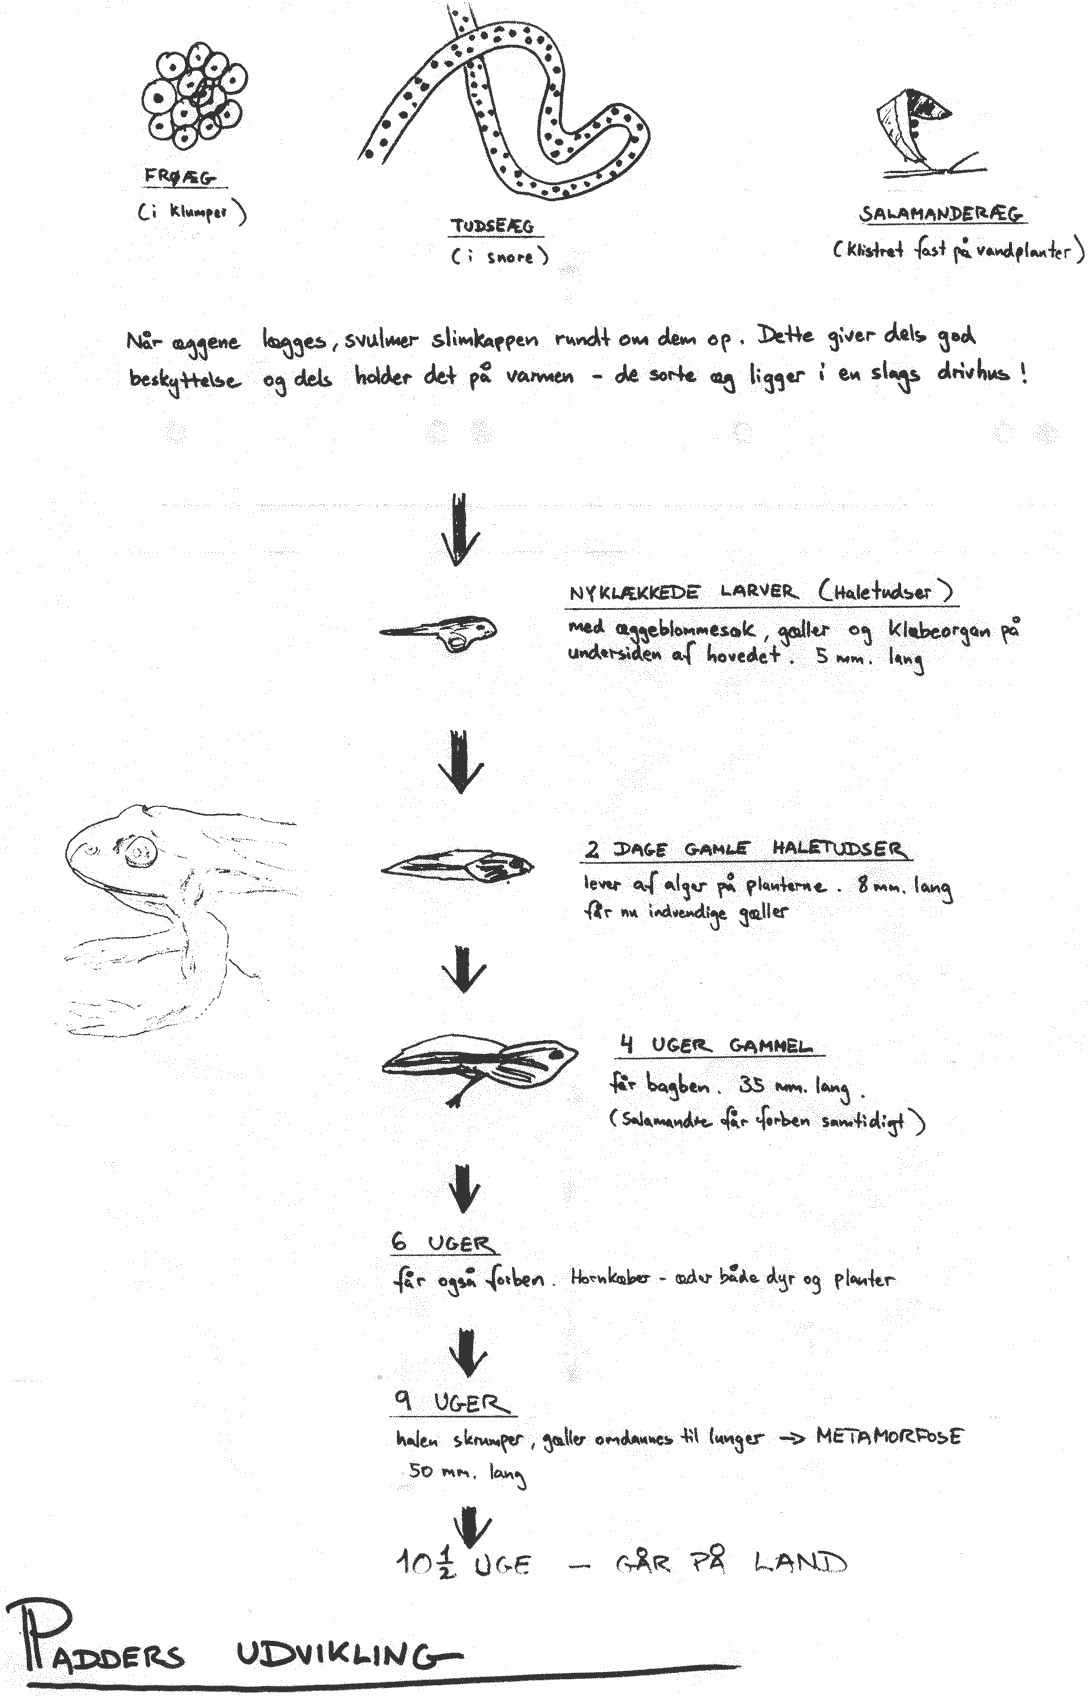 FRØÆG
(i klumper)
TUDSEÆG
(i snore)
SALAMANDERÆG
(klistret fast på vandplanter)
Når æggene lægges, svulmer slimkappen rundt om dem op. Dette giver dels god
beskyttelse og dels holder det på varmen - de sorte æg ligger i en slags drivhus!
NYKLÆKKEDE LARVER (Haletudser)
med æggeblommesæk, gæller og klæbeorgan på
undersiden af hovedet. 5 mm. lang
2 DAGE GAMLE HALETUDSER
lever af alger på planterne. 8 mm. lang
får nu indvendige gæller
4 UGER GAMMEL
får bagben. 35 mm. lang.
(Salamandre får forben samtidigt)
6 UGER
får også forben. Hornkæber - æder både dyr og planter
9 UGER
halen skrumper, gæller omdannes til lunger → METAMORFOSE
50 mm. lang
10 1/2 UGE - GÅR PÅ LAND
PADDERS UDVIKLING